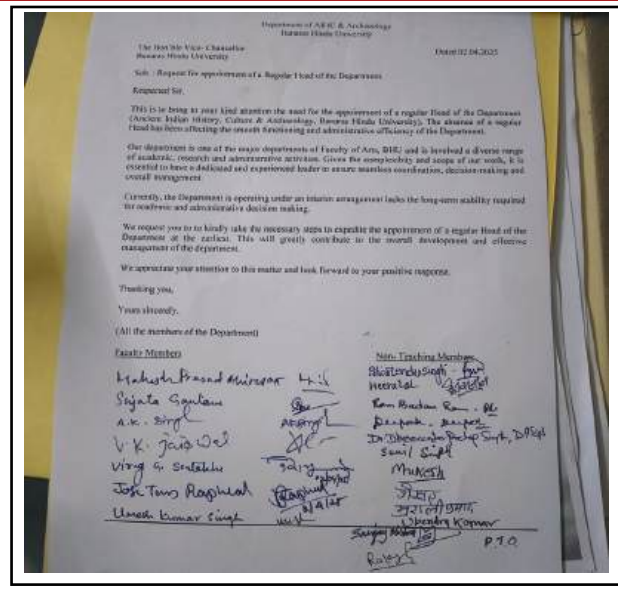 Department of AIHC & Archaeology
Banaras Hindu University
The Hon'ble Vice- Chancellor
Banaras Hindu University
Dated 02.04.2025
Sub. : Request for appointment of a Regular Head of the Department
Respected Sir,
This is to bring to your kind attention the need for the appointment of a regular Head of the Department
(Ancient Indian History, Culture & Archaeology, Banaras Hindu University). The absence of a regular
Head has been affecting the smooth functioning and administrative efficiency of the Department.
Our department is one of the major departments of Faculty of Arts, BHU and is involved a diverse range
of academic, research and administrative activities. Given the complexity and scope of our work, it is
essential to have a dedicated and experienced leader to ensure seamless coordination, decision-making and
overall management.
Currently, the Department is operating under an interim arrangement lacks the long-term stability required
for academic and administrative decision making.
We request you to to kindly take the necessary steps to expedite the appointment of a regular Head of the
Department at the earliest. This will greatly contribute to the overall development and effective
management of the department.
We appreciate your attention to this matter and look forward to your positive response.
Thanking you,
Yours sincerely,
(All the members of the Department)
Faculty Members
Non- Teaching Members
Mahesh Prasad Ahirwar
Sujata Gautam
A.K. Singh
V. K. Jaiswal
Virag G. Sontakke
Jose Tom Raphael
Umesh Kumar Singh
Heeralal
Ram Badan Ram
Deepak
Dr. Dheerendra Pratap Singh
Sunil
Mukesh
Upendra Kumar
P.T.O.